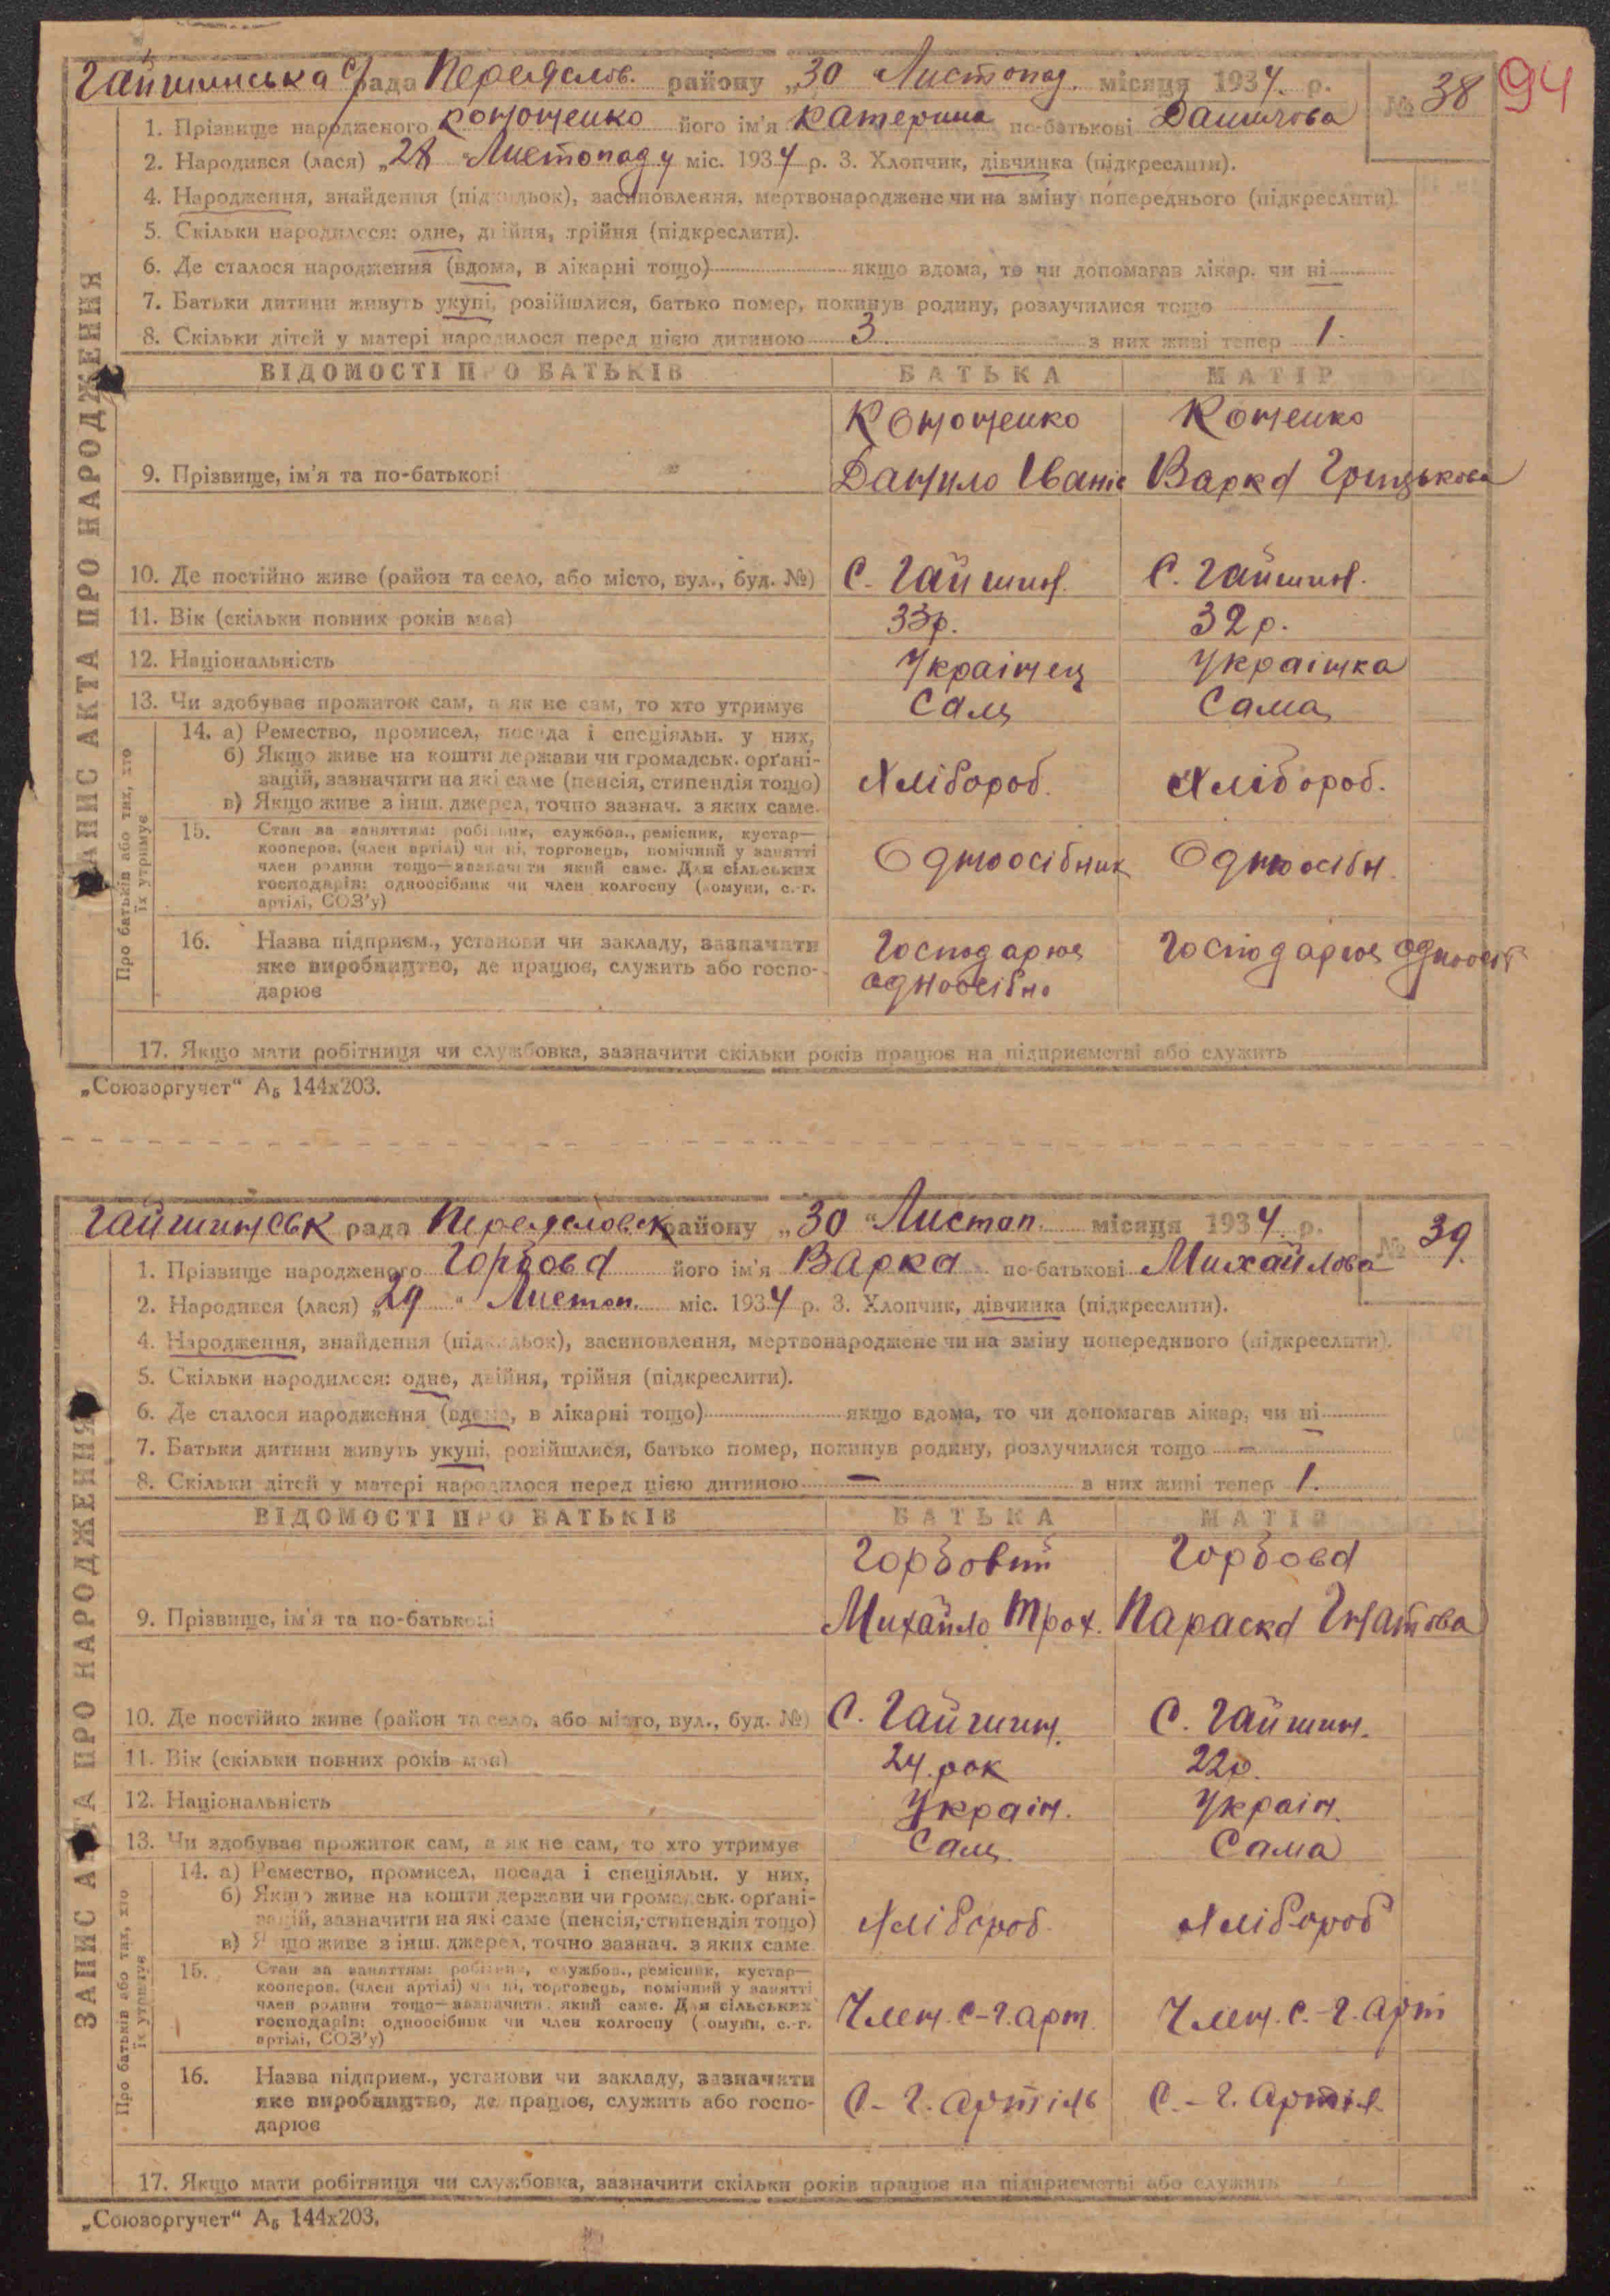 Гайшинська с/рада Переяслов. району „30 Листопад. місяця 1934 р.
№ 38
94
1. Прізвище народженого Кононенко його ім'я Катерина по-батькові Данилова
2. Народився (лася) „28 " Листопаду міс. 1934 р. 3. Хлопчик, дівчинка (підкреслити).
4. Народження, знайдення (підкидьок), засиновлення, мертвонароджене чи на зміну попереднього (підкреслити).
5. Скільки народилося: одне, двійня, трійня (підкреслити).
6. Де сталося народження (вдома, в лікарні тощо) якщо вдома, то чи допомагав лікар, чи ні
7. Батьки дитини живуть укупі, розійшлися, батько помер, покинув родину, розлучилися тощо
8. Скільки дітей у матері народилося перед цією дитиною 3 з них живі тепер 1.
ВІДОМОСТІ ПРО БАТЬКІВ БАТЬКА МАТІР
Кононенко
9. Прізвище, ім'я та по-батькові Данило Іванів Варка Грицькова
10. Де постійно живе (район та село, або місто, вул., буд. №) С. Гайшин. С. Гайшин.
11. Вік (скільки повних років має) 33р. 32р.
12. Національність Українец Українка
13. Чи здобуває прожиток сам, а як не сам, то хто утримує Сам Сама
14. а) Ремество, промисел, посада і спеціяльн. у них,
б) Якщо живе на кошти держави чи громадськ. орґані-
зацій, зазначити на які саме (пенсія, стипендія тощо) Хлібороб. Хлібороб.
в) Якщо живе з інш. джерел, точно зазнач. з яких саме.
15. Стан за заняттям: робітник, службов., ремісник, кустар—
кооперов. (член артілі) чи ні, торговець, помічний у занятті
член родини тощо—зазначити який саме. Для сільських Одноосібник Одноосібн.
господарів: одноосібник чи член колгоспу (комуни, с.-г.
артілі, СОЗ'у)
16. Назва підприєм., установи чи закладу, зазначити Господарює Господарює одноосіб
яке виробництво, де працює, служить або госпо- одноосібно
дарює
17. Якщо мати робітниця чи службовка, зазначити скільки років працює на підприємстві або служить
ЗАПИС АКТА ПРО НАРОДЖЕННЯ
Про батьків або тих, хто
їх утримує
„Союзоргучет" А₅ 144х203.
Гайшинськ рада Переясловськ району „30 " Листоп. місяця 1934 р.
№ 39.
1. Прізвище народженого Горбова його ім'я Варка по-батькові Михайлова
2. Народився (лася) „29 " Листоп. міс. 1934 р. 3. Хлопчик, дівчинка (підкреслити).
4. Народження, знайдення (підкидьок), засиновлення, мертвонароджене чи на зміну попереднього (підкреслити).
5. Скільки народилося: одне, двійня, трійня (підкреслити).
6. Де сталося народження (вдома, в лікарні тощо) якщо вдома, то чи допомагав лікар, чи ні
7. Батьки дитини живуть укупі, розійшлися, батько помер, покинув родину, розлучилися тощо –
8. Скільки дітей у матері народилося перед цією дитиною – з них живі тепер 1.
ВІДОМОСТІ ПРО БАТЬКІВ БАТЬКА МАТІР
Горбовий Горбова
9. Прізвище, ім'я та по-батькові Михайло Трох. Параска Гнатова
10. Де постійно живе (район та село, або місто, вул., буд. №) С. Гайшин. С. Гайшин.
11. Вік (скільки повних років має) 24 рок 22р.
12. Національність Україн. Україн.
13. Чи здобуває прожиток сам, а як не сам, то хто утримує Сам Сама
14. а) Ремество, промисел, посада і спеціяльн. у них,
б) Якщо живе на кошти держави чи громадськ. орґані-
зацій, зазначити на які саме (пенсія, стипендія тощо) Хлібороб. Хлібороб
в) Якщо живе з інш. джерел, точно зазнач. з яких саме
15. Стан за заняттям: робітник, службов., ремісник, кустар—
кооперов. (член артілі) чи ні, торговець, помічний у занятті
член родини тощо—зазначити який саме. Для сільських Член. с-г. арт. Член. с.-г. арт
господарів: одноосібник чи член колгоспу (комуни, с.-г.
артілі, СОЗ'у)
16. Назва підприєм., установи чи закладу, зазначити
яке виробництво, де працює, служить або госпо- С-г. артіль С.-г. артіл.
дарює
17. Якщо мати робітниця чи службовка, зазначити скільки років працює на підприємстві або служить
ЗАПИС АКТА ПРО НАРОДЖЕННЯ
Про батьків або тих, хто
їх утримує
„Союзоргучет" А₅ 144х203.